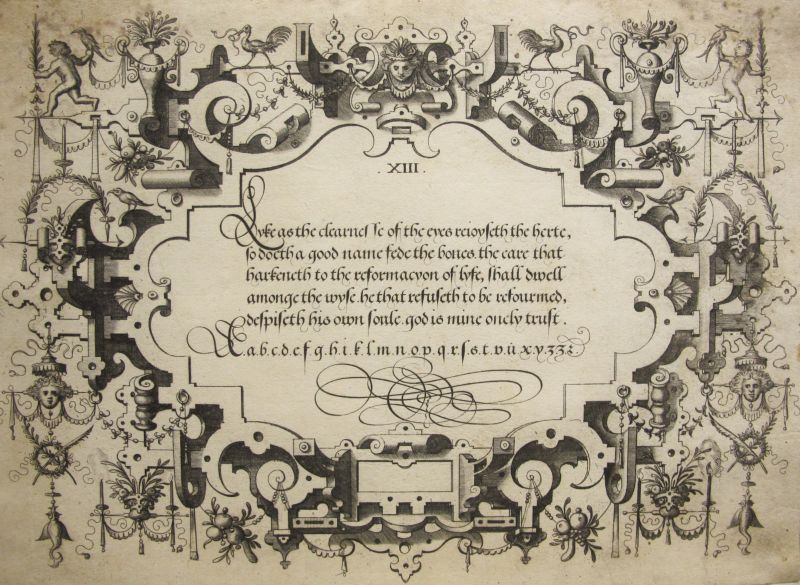 . XIII .
Lyke as the clearnesse of the eyes reioyseth the herte,
so doeth a good name fede the bones. the eare that
harkeneth to the reformacyon of lyfe, shall dwell
amonge the wyse. he that refuseth to be refourmed,
despiseth his own soule. god is mine onely trust .
A.a.b.c.d.e.f.g.h.i.k.l.m.n.o.p.q.r.ſ.s.t.v.ü.x.y.z.z.